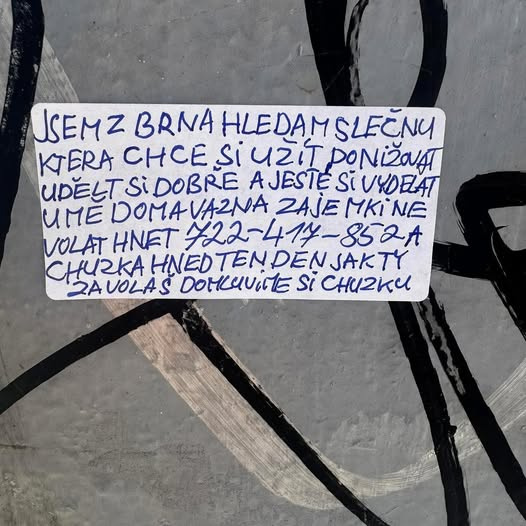 JSEM Z BRNA HLEDAM SLEČNU
KTERA CHCE SI UŽÍT PONIŽOVAT
UDĚLT SI DOBŘE A JESTĚ SI VYDELAT
U MĚ DOMA VAZNA ZAJEMKINE
VOLAT HNET 722-417-852 A
CHUZKA HNED TEN DEN JAK TY
ZAVOLAŠ DOMLUVIME SI CHUZKU